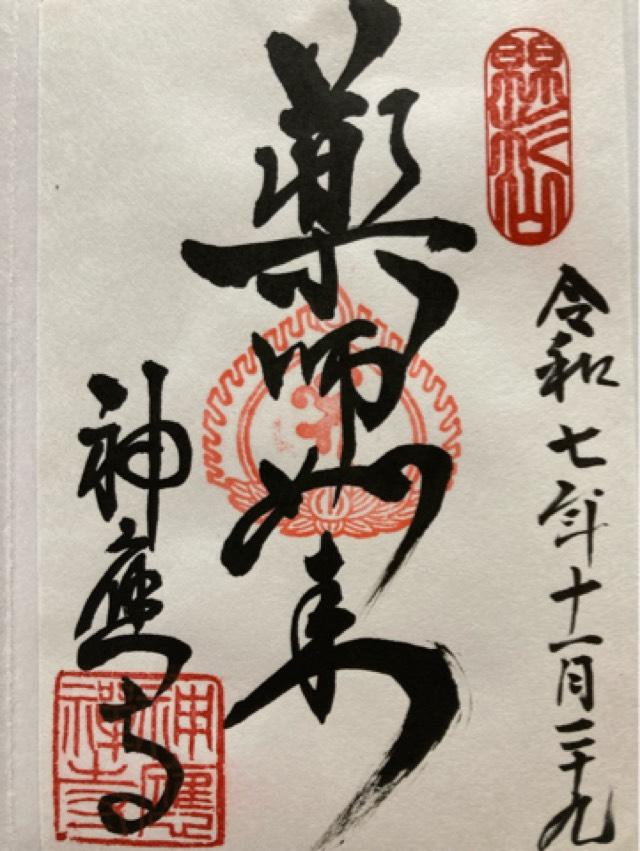 絲杉山
令和七年十一月二十九
薬師如来
神應寺
神應
禪寺